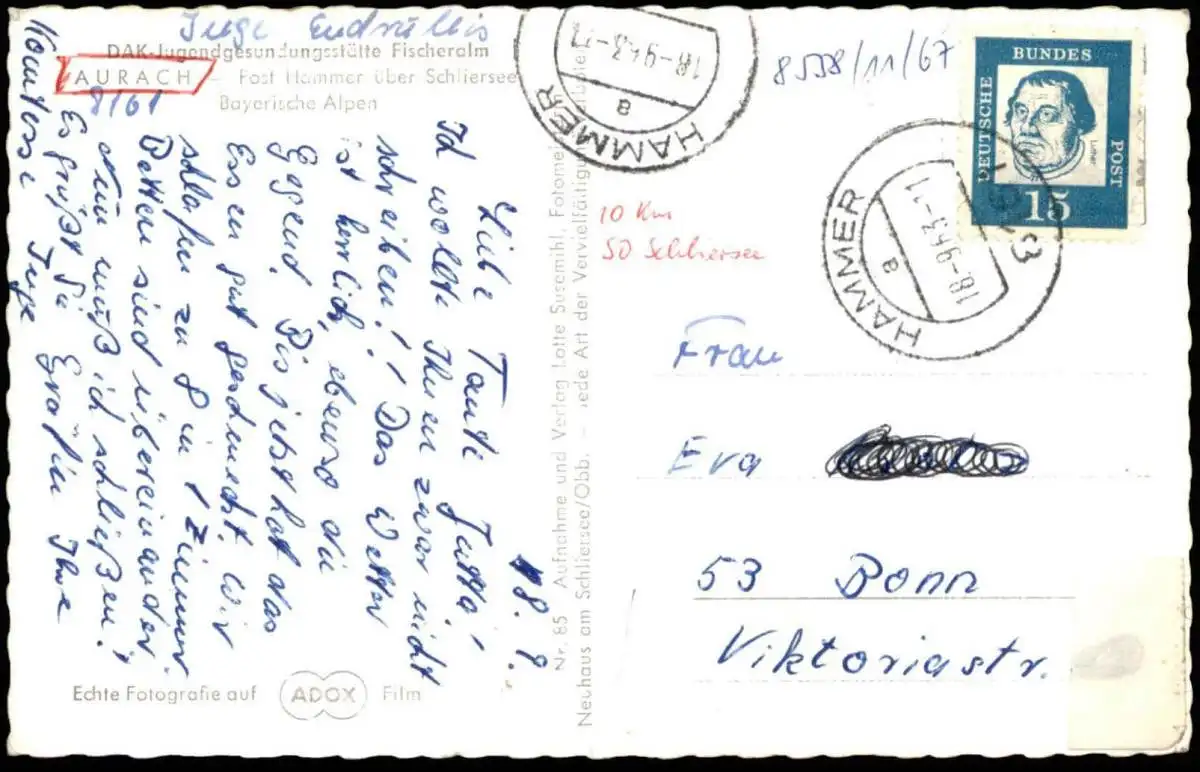 Inge Endrullis
DAK-Jugendgesundungsstätte Fischeralm
AURACH – Post Hammer über Schliersee
Bayerische Alpen
8/61
18. 9.
Liebe Tante Jutta!
Id wollte Ihnen zwar nicht
schreiben! Das Wetter
ist herrlich, ebenso die
Eggend. Bis jetzt hat das
Essen gut geschmeckt. Wir
schlafen zu 8 in 1 Zimmer.
Betten sind übereinander.
Nun muß ich schließen!
Es grüßt Sie Gräfin Ihre
Komtess Inge
Echte Fotografie auf ADOX Film
Nr. 85 Aufnahme und Verlag Lotte Susemihl, Fotomei
Neuhaus am Schliersee/Obb. – Jede Art der Vervielfältigung
HAMMER
a
18-9.63-11
8558/11/67
10 Km
SO Schliersee
DEUTSCHE
BUNDES
POST
Luther
15
HAMMER
a
18-9.63-11
Frau
Eva
53 Bonn
Viktoriastr.